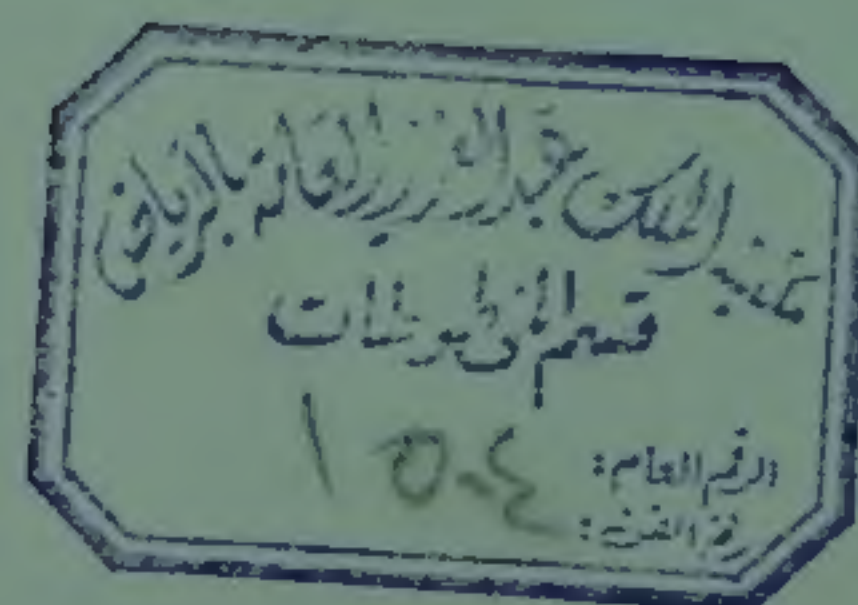 مكتبة الملك عبد العزيز العامة بالرياض
قسم المخطوطات
الرقم العام: ١٥٠٤
رقم التصنيف: